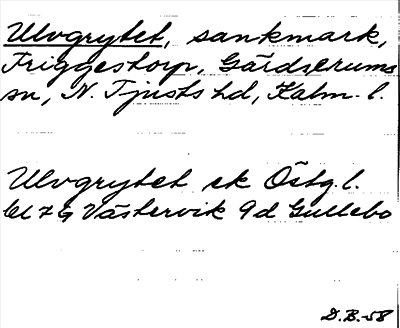 Ulvgrytet, sankmark,
Friggestorp, Gärdserums
sn, N. Tjusts hd, Kalm. l.
Ulvgrytet ek Östg. l.
bl 7 G Västervik 9d Gullebo
D.B.-58